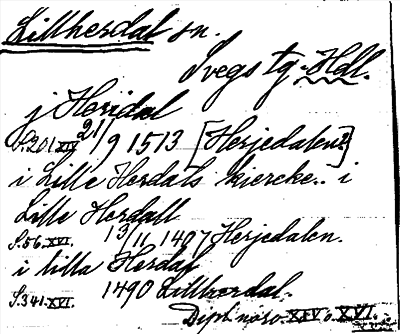 Lillherdal sn.
Svegs tg. Hdl.
j Heridal
S.201.XIV 21/9 1513 [Herjedalen]
i Lille Herdals kiercke.. i
Lille Herdall
S.56.XVI. 13/11 1407 Herjedalen.
i litla Herdal
S.341.XVI. 1490 Lillherdal.
Dipl. norv. XIV o. XVI.